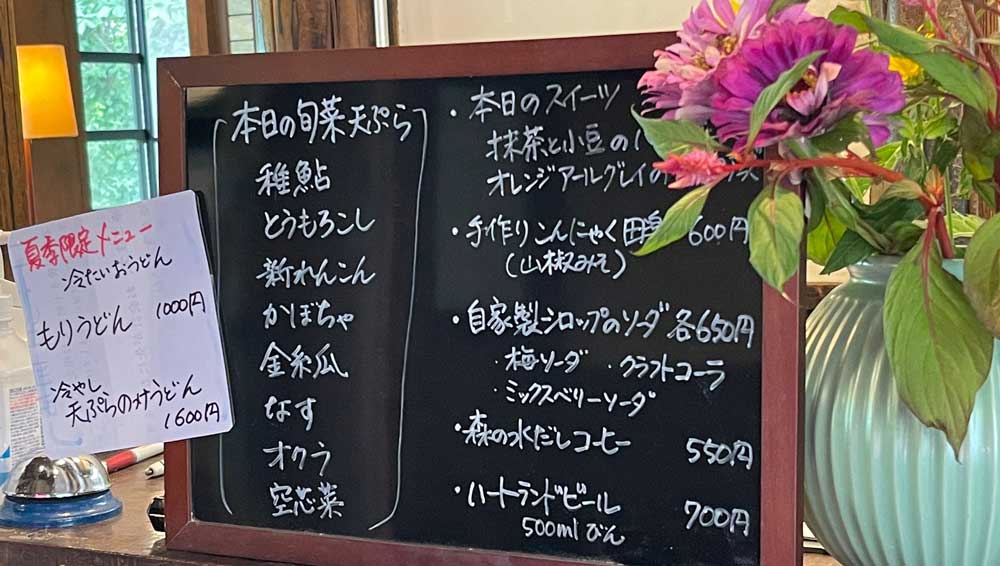 夏季限定メニュー
冷たいおうどん
もりうどん 1000円
冷やし
天ぷらのせうどん
1600円
本日の旬菜天ぷら
稚鮎
とうもろこし
新れんこん
かぼちゃ
金糸瓜
なす
オクラ
空芯菜
・本日のスイーツ
抹茶と小豆の
オレンジアールグレイの
・手作りこんにゃく田楽 600円
(山椒みそ)
・自家製シロップのソーダ 各650円
・梅ソーダ ・クラフトコーラ
・ミックスベリーソーダ
・森の水だしコーヒー 550円
・ハートランドビール 700円
500mlびん